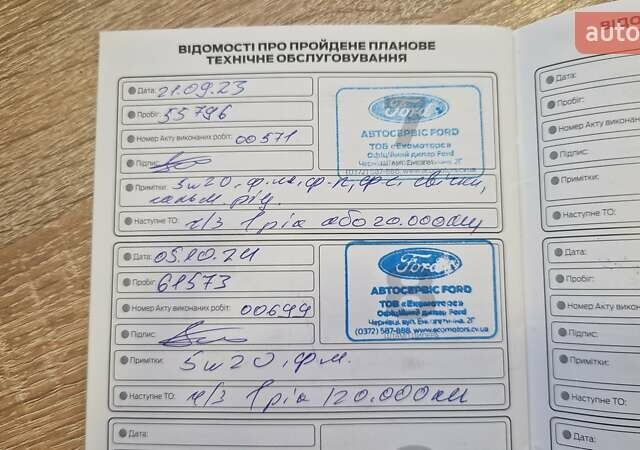 ВІДОМОСТІ ПРО ПРОЙДЕНЕ ПЛАНОВЕ
ТЕХНІЧНЕ ОБСЛУГОВУВАННЯ
auto
Дата: 21.09.23
Пробіг: 55796
Номер Акту виконаних робіт: 00571
Підпис:
Ford
АВТОСЕРВІС FORD
ТОВ «Екомоторс»
Офіційний дилер Ford
Примітки: 5w20, ф.м., ф-п, ф-с, свічки,
гальм. рід.
Наступне ТО: ч/з 1 рік або 20.000км
Дата: 05.10.24
Пробіг: 61573
Номер Акту виконаних робіт: 00699
Підпис:
Ford
АВТОСЕРВІС FORD
ТОВ «Екомоторс»
Офіційний дилер Ford
(0372) 587-888, www.ecomotors.cv.ua
Примітки: 5w20, ф.м.
Наступне ТО: ч/з 1 рік /20.000км
Дата:
Дата:
Пробіг:
Номер Акту викона
Підпис:
Примітки:
Наступне ТО:
Дата:
Пробіг:
Номер Акту
Підпис:
Примітки:
Наступне ТО:
Дата: